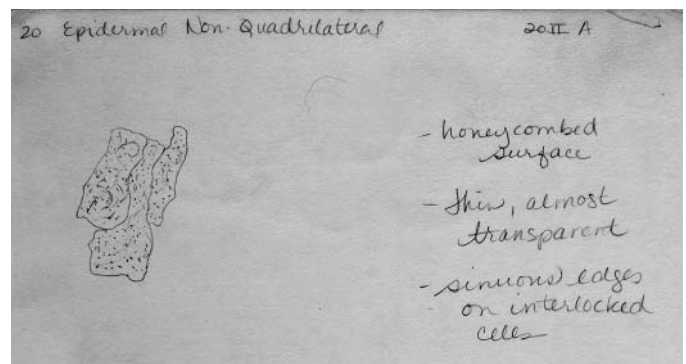 20 Epidermal Non-Quadrilateral 20 II A
- honeycombed
surface
- thin, almost
transparent
- sinuous edges
on interlocked
cells